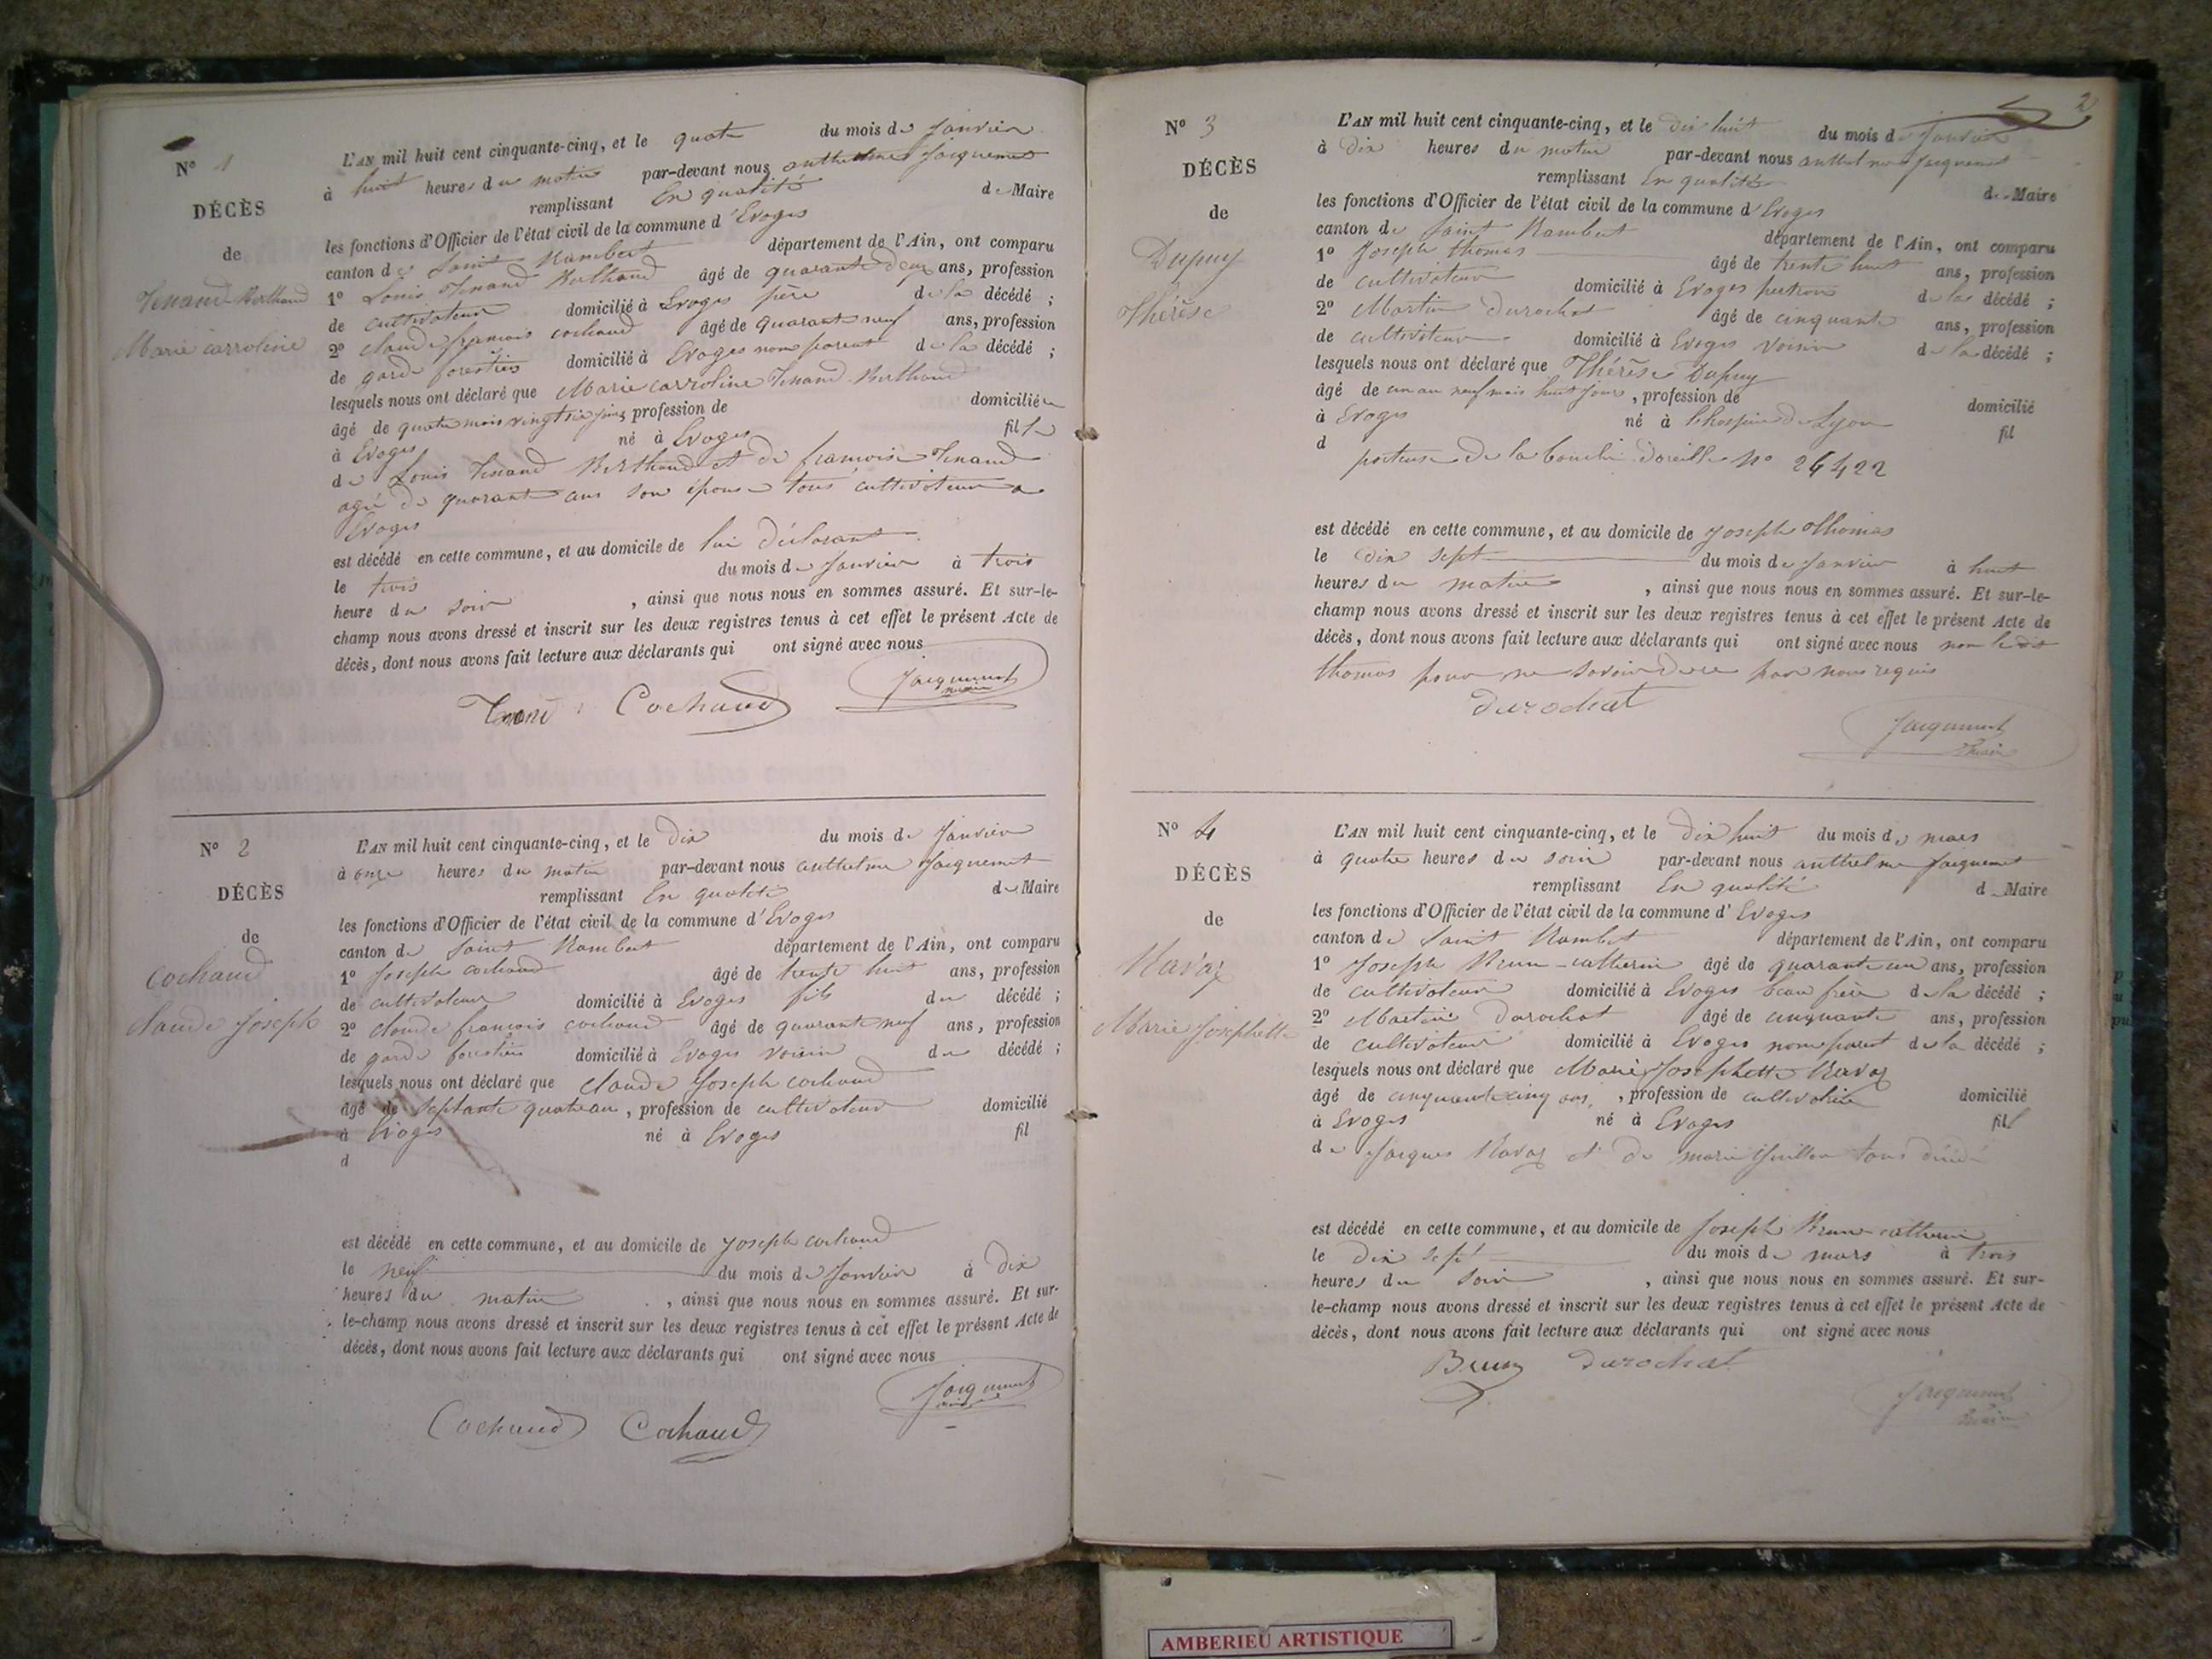 N° 1
DÉCÈS
de
Tenand Berthaud
Marie carroline
L'AN mil huit cent cinquante-cinq, et le quatre du mois de Janvier
à huit heures du matin par-devant nous anthelme Jacquemet
remplissant En qualité de Maire
les fonctions d'Officier de l'état civil de la commune d'Evoges
canton de Saint Rambert département de l'Ain, ont comparu
1° Louis Tenand Berthaud âgé de quarante deux ans, profession
de cultivateur domicilié à Evoges père de la décédé ;
2° claude francois cochaud âgé de quarante neuf ans, profession
de garde forestier domicilié à Evoges non parent de la décédé ;
lesquels nous ont déclaré que Marie carroline Tenand Berthaud
âgé de quatre mois vingt six jours profession de domiciliée
à Evoges né à Evoges fille
de Louis Tenand Berthaud et de francoise Tenand
agée de quarante ans son épouse tous cultivateur a
Evoges
est décédé en cette commune, et au domicile de lui déclarant
le trois du mois de Janvier à trois
heure du soir , ainsi que nous nous en sommes assuré. Et sur-le-
champ nous avons dressé et inscrit sur les deux registres tenus à cet effet le présent Acte de
décès, dont nous avons fait lecture aux déclarants qui ont signé avec nous
Cochaud Jacquemet
maire
N° 2
DÉCÈS
de
cochaud
claude Joseph
L'AN mil huit cent cinquante-cinq, et le Dix du mois de Janvier
à onze heures du matin par-devant nous anthelme Jacquemet
remplissant En qualité de Maire
les fonctions d'Officier de l'état civil de la commune d'Evoges
canton de Saint Rambert département de l'Ain, ont comparu
1° Joseph cochaud âgé de trente huit ans, profession
de cultivateur domicilié à Evoges fils du décédé ;
2° claude francois cochaud âgé de quarante neuf ans, profession
de garde forestier domicilié à Evoges voisin du décédé ;
lesquels nous ont déclaré que claude Joseph cochaud
âgé de septante quatre an, profession de cultivateur domicilié
à Evoges né à Evoges fil
d
est décédé en cette commune, et au domicile de Joseph cochaud
le neuf du mois de Janvier à dix
heures du matin , ainsi que nous nous en sommes assuré. Et sur-
le-champ nous avons dressé et inscrit sur les deux registres tenus à cet effet le présent Acte de
décès, dont nous avons fait lecture aux déclarants qui ont signé avec nous
Cochaud Cochaud Jacquemet
2
N° 3
DÉCÈS
de
Dupuy
Thérèse
L'AN mil huit cent cinquante-cinq, et le dix huit du mois de Janvier
à Dix heures du matin par-devant nous anthelme Jacquemet
remplissant En qualité de Maire
les fonctions d'Officier de l'état civil de la commune d'Evoges
canton de Saint Rambert département de l'Ain, ont comparu
1° Joseph thomas âgé de trente huit ans, profession
de cultivateur domicilié à Evoges de la décédé ;
2° Martin Durochat âgé de cinquante ans, profession
de cultivateur domicilié à Evoges voisin de la décédé ;
lesquels nous ont déclaré que Thérèse Dupuy
âgé de un an neuf mois huit jours, profession de domicilié
à Evoges né à Lhospice de Lyon fil
d porteuse de la boucle doreille N° 26422
est décédé en cette commune, et au domicile de Joseph Thomas
le dix sept du mois de Janvier à huit
heures du matin , ainsi que nous nous en sommes assuré. Et sur-le-
champ nous avons dressé et inscrit sur les deux registres tenus à cet effet le présent Acte de
décès, dont nous avons fait lecture aux déclarants qui ont signé avec nous non ledit
thomas pour ne savoir de ce par nous requis
durochat
Jacquemet
maire
N° 4
DÉCÈS
de
Ravaz
Marie Josephette
L'AN mil huit cent cinquante-cinq, et le Dix huit du mois de mars
à quatre heures du soir par-devant nous anthelme Jacquemet
remplissant En qualité d Maire
les fonctions d'Officier de l'état civil de la commune d'Evoges
canton de Saint Rambert département de l'Ain, ont comparu
1° Joseph Brun-catherin âgé de quarante un ans, profession
de cultivateur domicilié à Evoges beau frère de la décédé ;
2° Martin Durochat âgé de cinquante ans, profession
de cultivateur domicilié à Evoges non parent de la décédé ;
lesquels nous ont déclaré que Marie Josephette Ravaz
âgé de cinquante cinq ans, profession de cultivatrice domicilié
à Evoges né à Evoges fil
de Jacques Ravaz et de marie tous décédé
est décédé en cette commune, et au domicile de Joseph Brun-catherin
le Dix sept du mois de mars à trois
heures du soir , ainsi que nous nous en sommes assuré. Et sur-
le-champ nous avons dressé et inscrit sur les deux registres tenus à cet effet le présent Acte de
décès, dont nous avons fait lecture aux déclarants qui ont signé avec nous
Brun durochat
Jacquemet
maire
AMBERIEU ARTISTIQUE